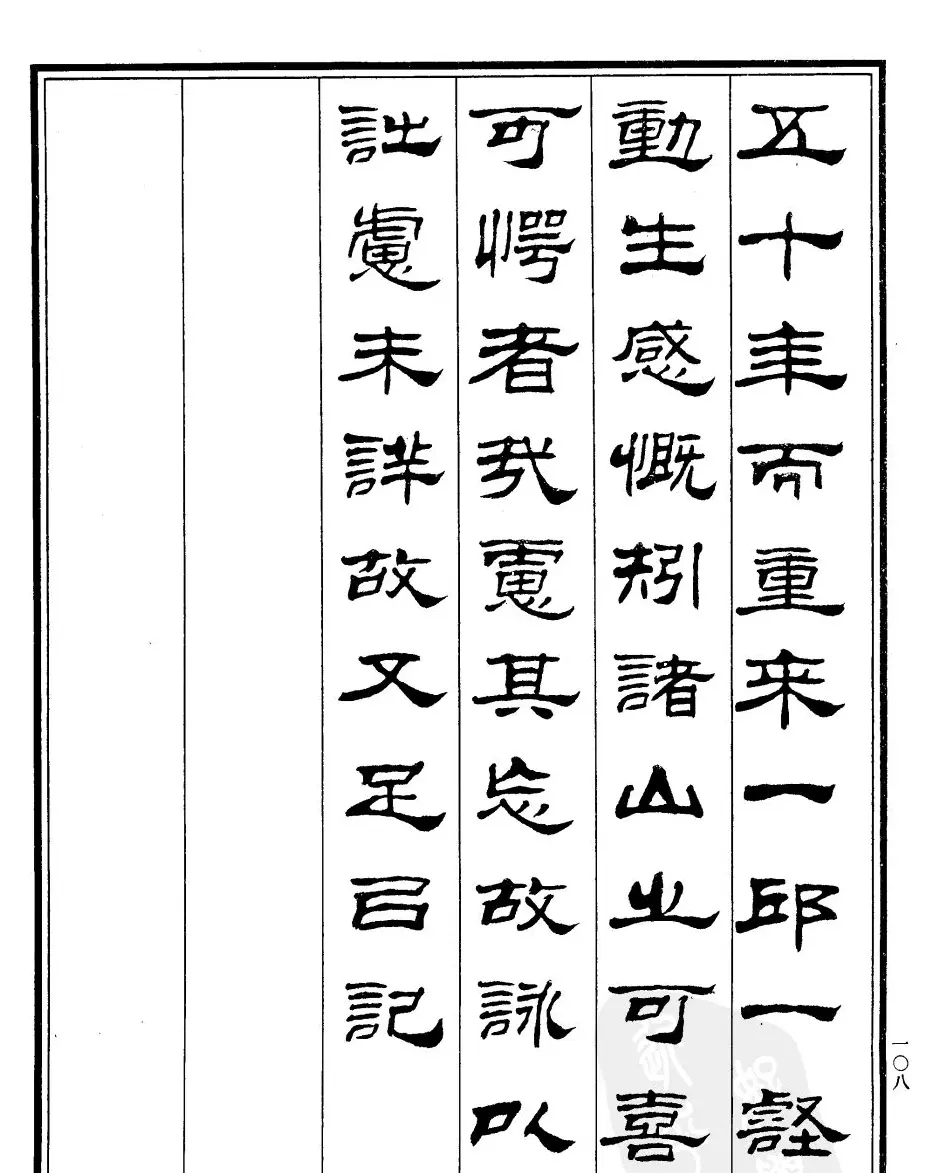 五十年而重来一邱一壑
動生感慨矧諸山之可喜
可愕者哉慮其忘故詠以
詩慮未詳故又足㠯記
一〇八